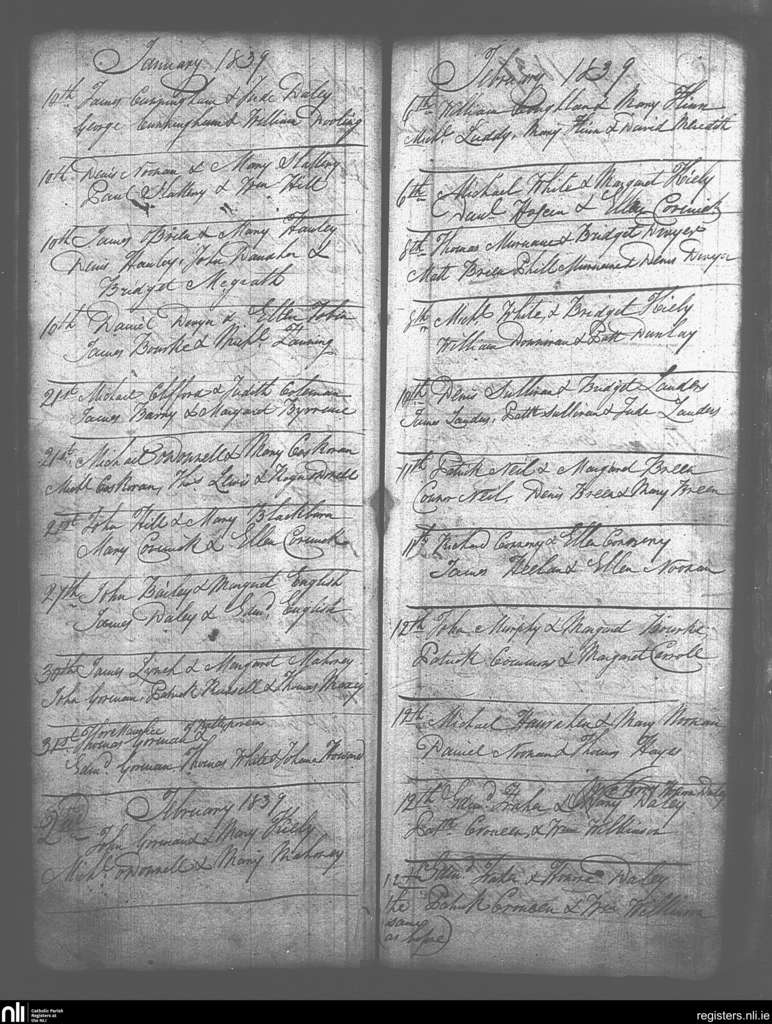 January 1839
10th James Cunningham & Jude Daley
George Cunningham & William
10th Denis Noonan & Mary Slattery
Paul Slattery & Wm Hill
10th James OBrien & Mary Hanley
Denis Hanley, John Danaher &
Bridget Megrath
10th Daniel Dwyer & Ellen Tobin
James Bourke & Michl Fanning
21st Michael Clifford & Judith Coleman
James Barry & Margaret
21st Michael ODonnell & Mary Corkoran
Michl Corkoran, Thos Lewis &
21st John Hill & Mary Blackburn
Mary Cormick & Ellen Cormick
27th John Bailey & Margaret English
James Daley & Edmd English
30th James Lynch & Margaret Mahoney
John Gorman, Patrick Russell & Thomas
31st Thomas Gorman &
Edmd Gorman Thomas White & Johana
February 1839
2nd John Gorman & Mary Kiely
Michl ODonnell & Mary Mahoney
February 1839
6th William Coughlan & Mary Flinn
Michl Luddy, Mary Flinn & David Meredith
6th Michael White & Margaret Kiely
Paul & Ellen Cormick
8th Thomas Murnane & Bridget Dwyer
Matt Brien Phill Murnane & Denis Dwyer
8th Michl White, & Bridget Kiely
William Donnivan & Patt Dunlay
10th Denis Sullivan & Bridget Landers
James Landers, Patt Sullivan & Jude Landers
11th Patrick Neil & Margaret Breen
Conor Neil, Denis Breen & Mary Breen
11th Richard & Ellen
James Heelan & Ellen Noonan
12th John Murphy & Margaret Rourke
Patrick & Margaret Carroll
12th Michael & Mary Noonan
Daniel Noonan & Thomas Hayes
12th Edmd & Mary Daley
Patt Croneen, & Wm Wilkinson
12th Edmd & Daley
the Patrick Croneen & Wm
same
as before
nli
Catholic Parish
Registers at
the NLI
registers.nli.ie